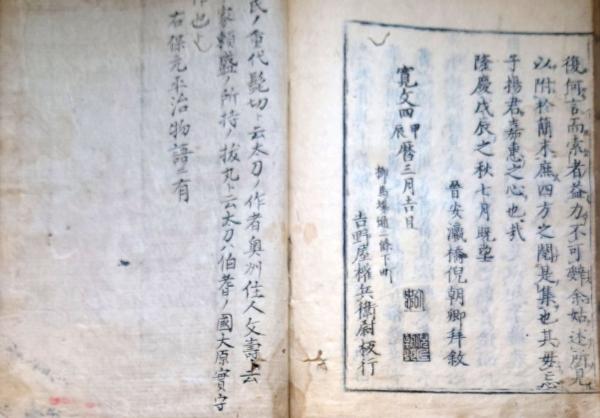 復何言而索者益力不可辞余姑述所見
以附於蘭末庶四方之閲是集也其毋忘
子揚君嘉惠之心也哉
隆慶戊辰之秋七月既望
晉安瀛橋倪朝卿拜敘
寛文四甲辰暦三月吉日
柳馬場通二條下町
吉野屋権兵衛尉板行
氏ノ重代髭切ト云太刀ノ作者奥州住人文壽ト云
家頼盛ノ所持ノ抜丸ト云太刀ハ伯耆ノ國大原實守
作也ト
右保元平治物語ニ有